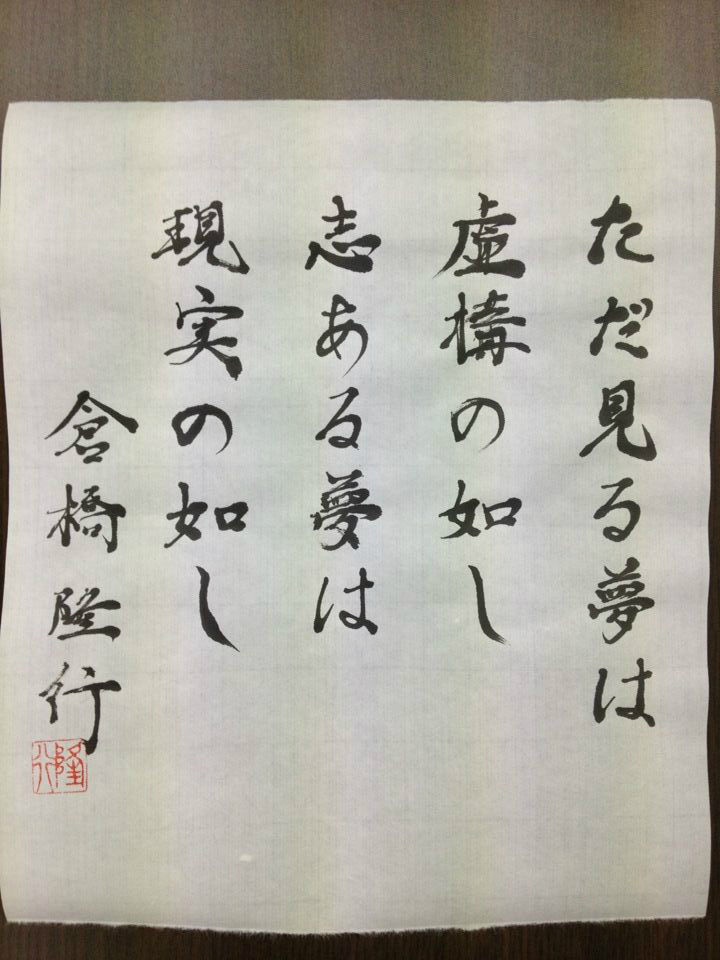 ただ見る夢は
虚構の如し
志ある夢は
現実の如し
倉橋隆行
隆行